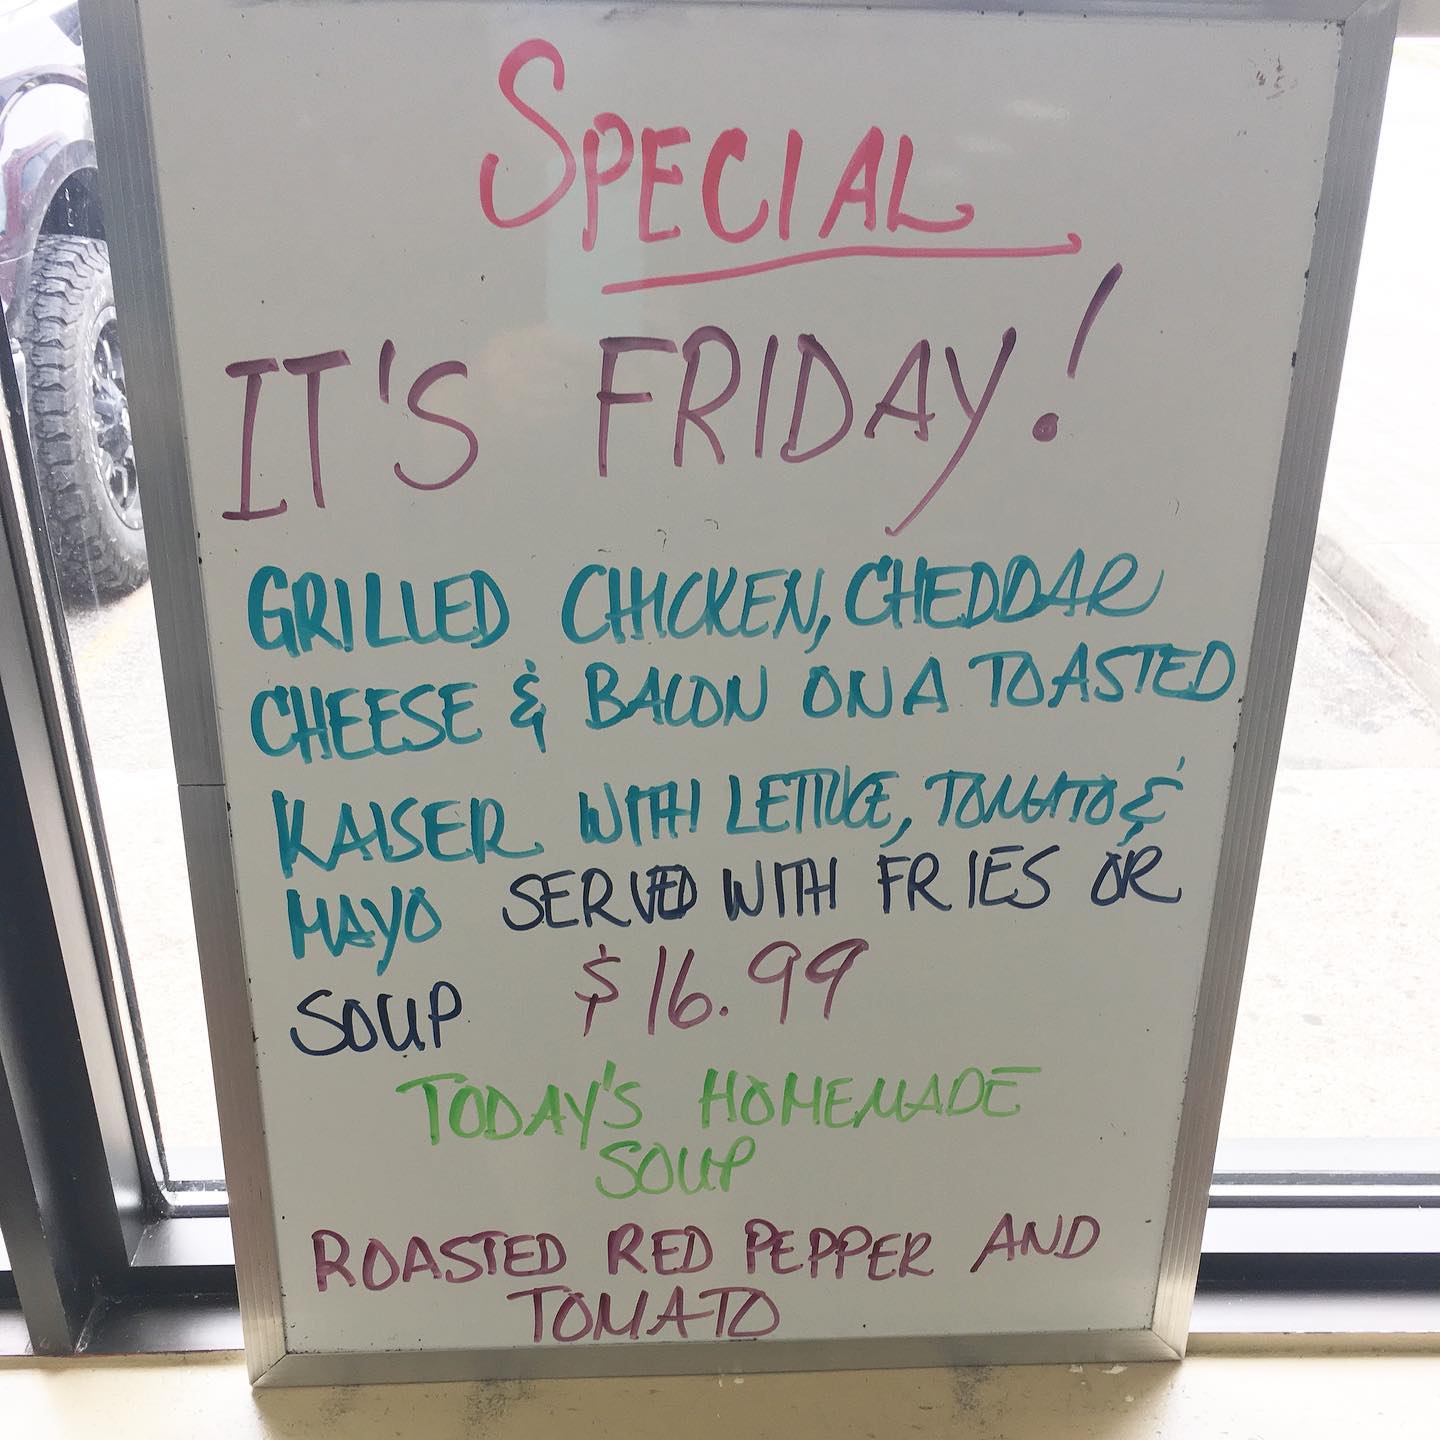 SPECIAL
IT'S FRIDAY!
GRILLED CHICKEN, CHEDDAR
CHEESE & BACON ON A TOASTED
KAISER WITH LETTUCE, TOMATO &
MAYO SERVED WITH FRIES OR
SOUP $16.99
TODAY'S HOMEMADE
SOUP
ROASTED RED PEPPER AND
TOMATO